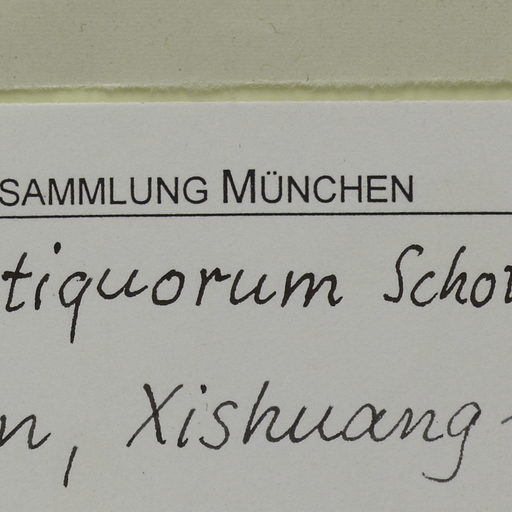 SAMMLUNG MÜNCHEN
tiquorum Schot
n, Xishuang-